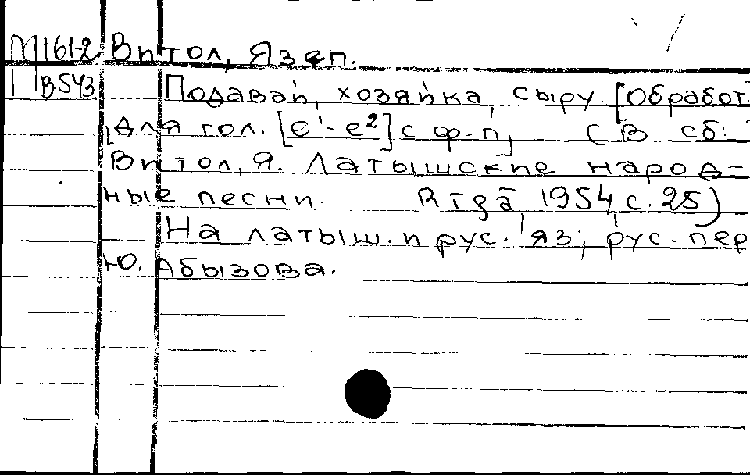 М161-2 Витол, Язеп.
В543 Подавай, хозяйка, сыру [Обработ.
для гол. [e¹-e²] с ф-п, (В сб:
Витол, Я. Латышские народ-
ные песни. Rīgā, 1954, с. 25)
На латыш. и рус. яз; рус. пер
Ю. Абызова.